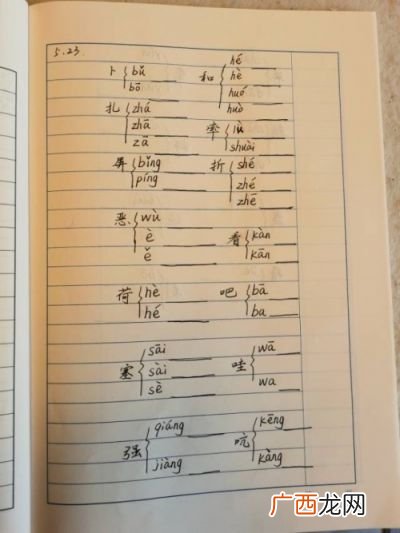 5.23.
卜 bǔ
bō
和 hé
hè
huó
huò
扎 zhá
zhā
zā
率 lǜ
shuài
屏 bǐng
píng
折 shé
zhé
zhē
恶 wù
è
ě
看 kàn
kān
荷 hè
hé
吧 bā
ba
塞 sāi
sài
sè
哇 wā
wa
强 qiáng
jiàng
吭 kēng
kàng
广西龙网